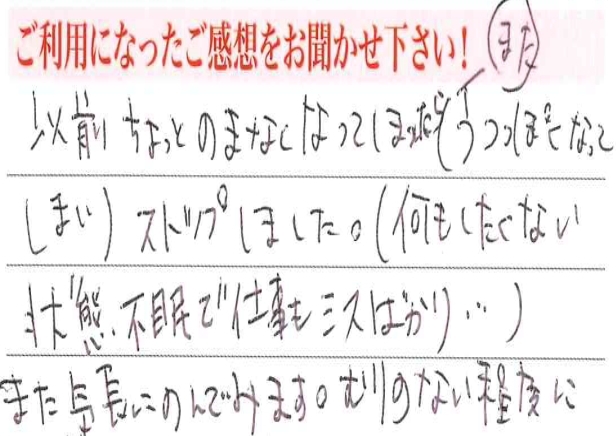 ご利用になったご感想をお聞かせ下さい!
また
以前ちょっとのまなくなってしまったら うつっぽくなって
しまい)ストップしました。(何もしたくない
状態.不眠で仕事もミスばかり…)
また気長にのんでみます。むりのない程度に